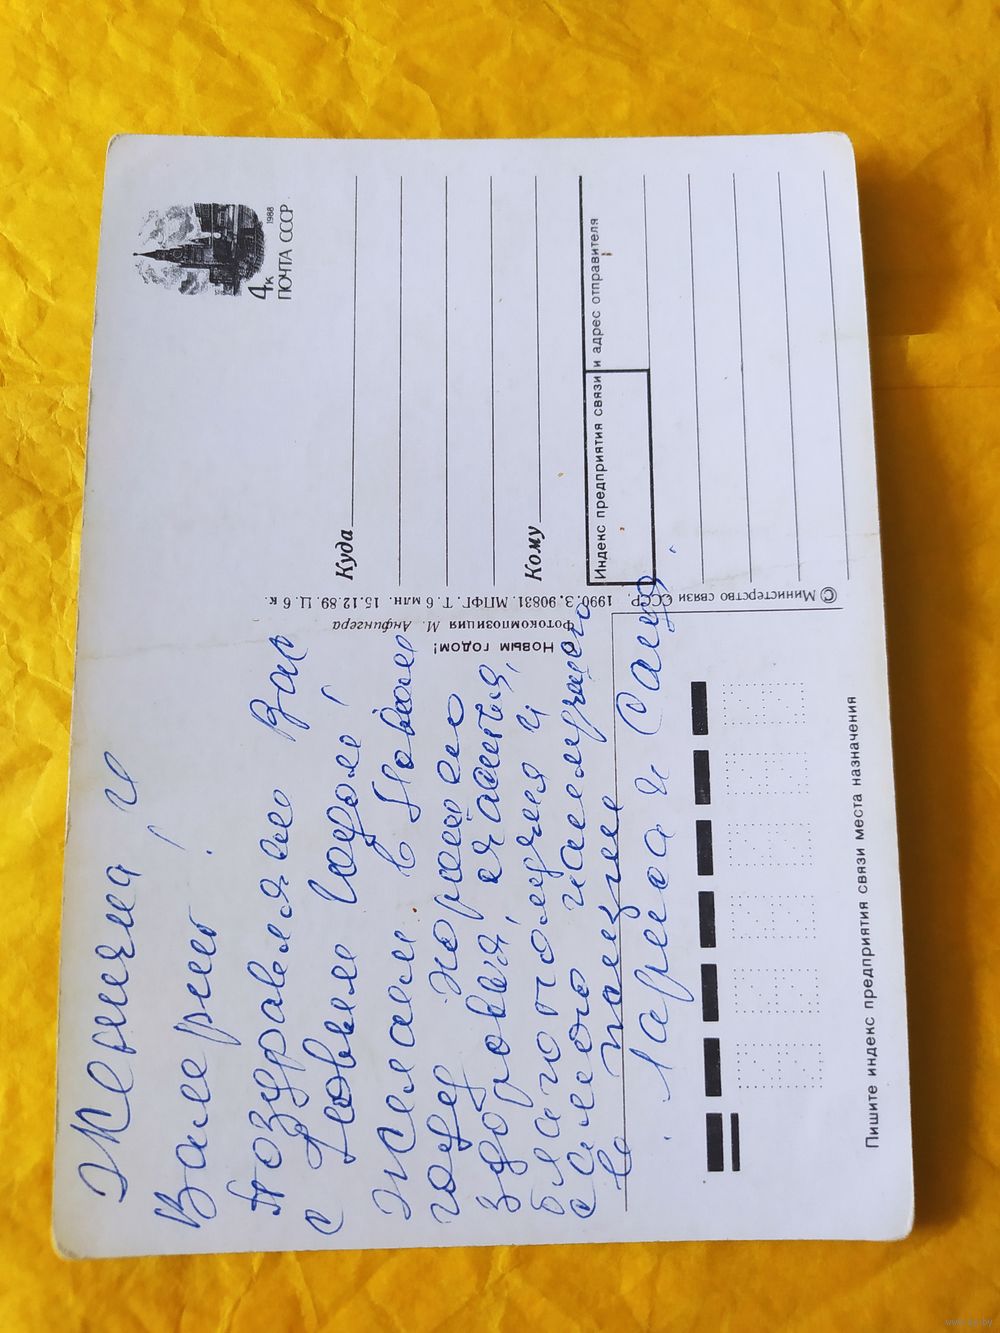 Женечка и
Валерик!
Поздравляем Вас
с Новым Годом!
Желаем в Новом
году хорошего
здоровья, счастья,
благополучия и
самого наилучшего
в жизни
Лариса и Саша.
С Новым годом!
Фотокомпозиция М. Анфингера
© Министерство связи СССР, 1990. З. 90831. МПФГ. Т. 6 млн. 15.12.89. Ц. 6 к.
4к
1988
ПОЧТА СССР
Куда
Кому
Индекс предприятия связи и адрес отправителя
Пишите индекс предприятия связи места назначения